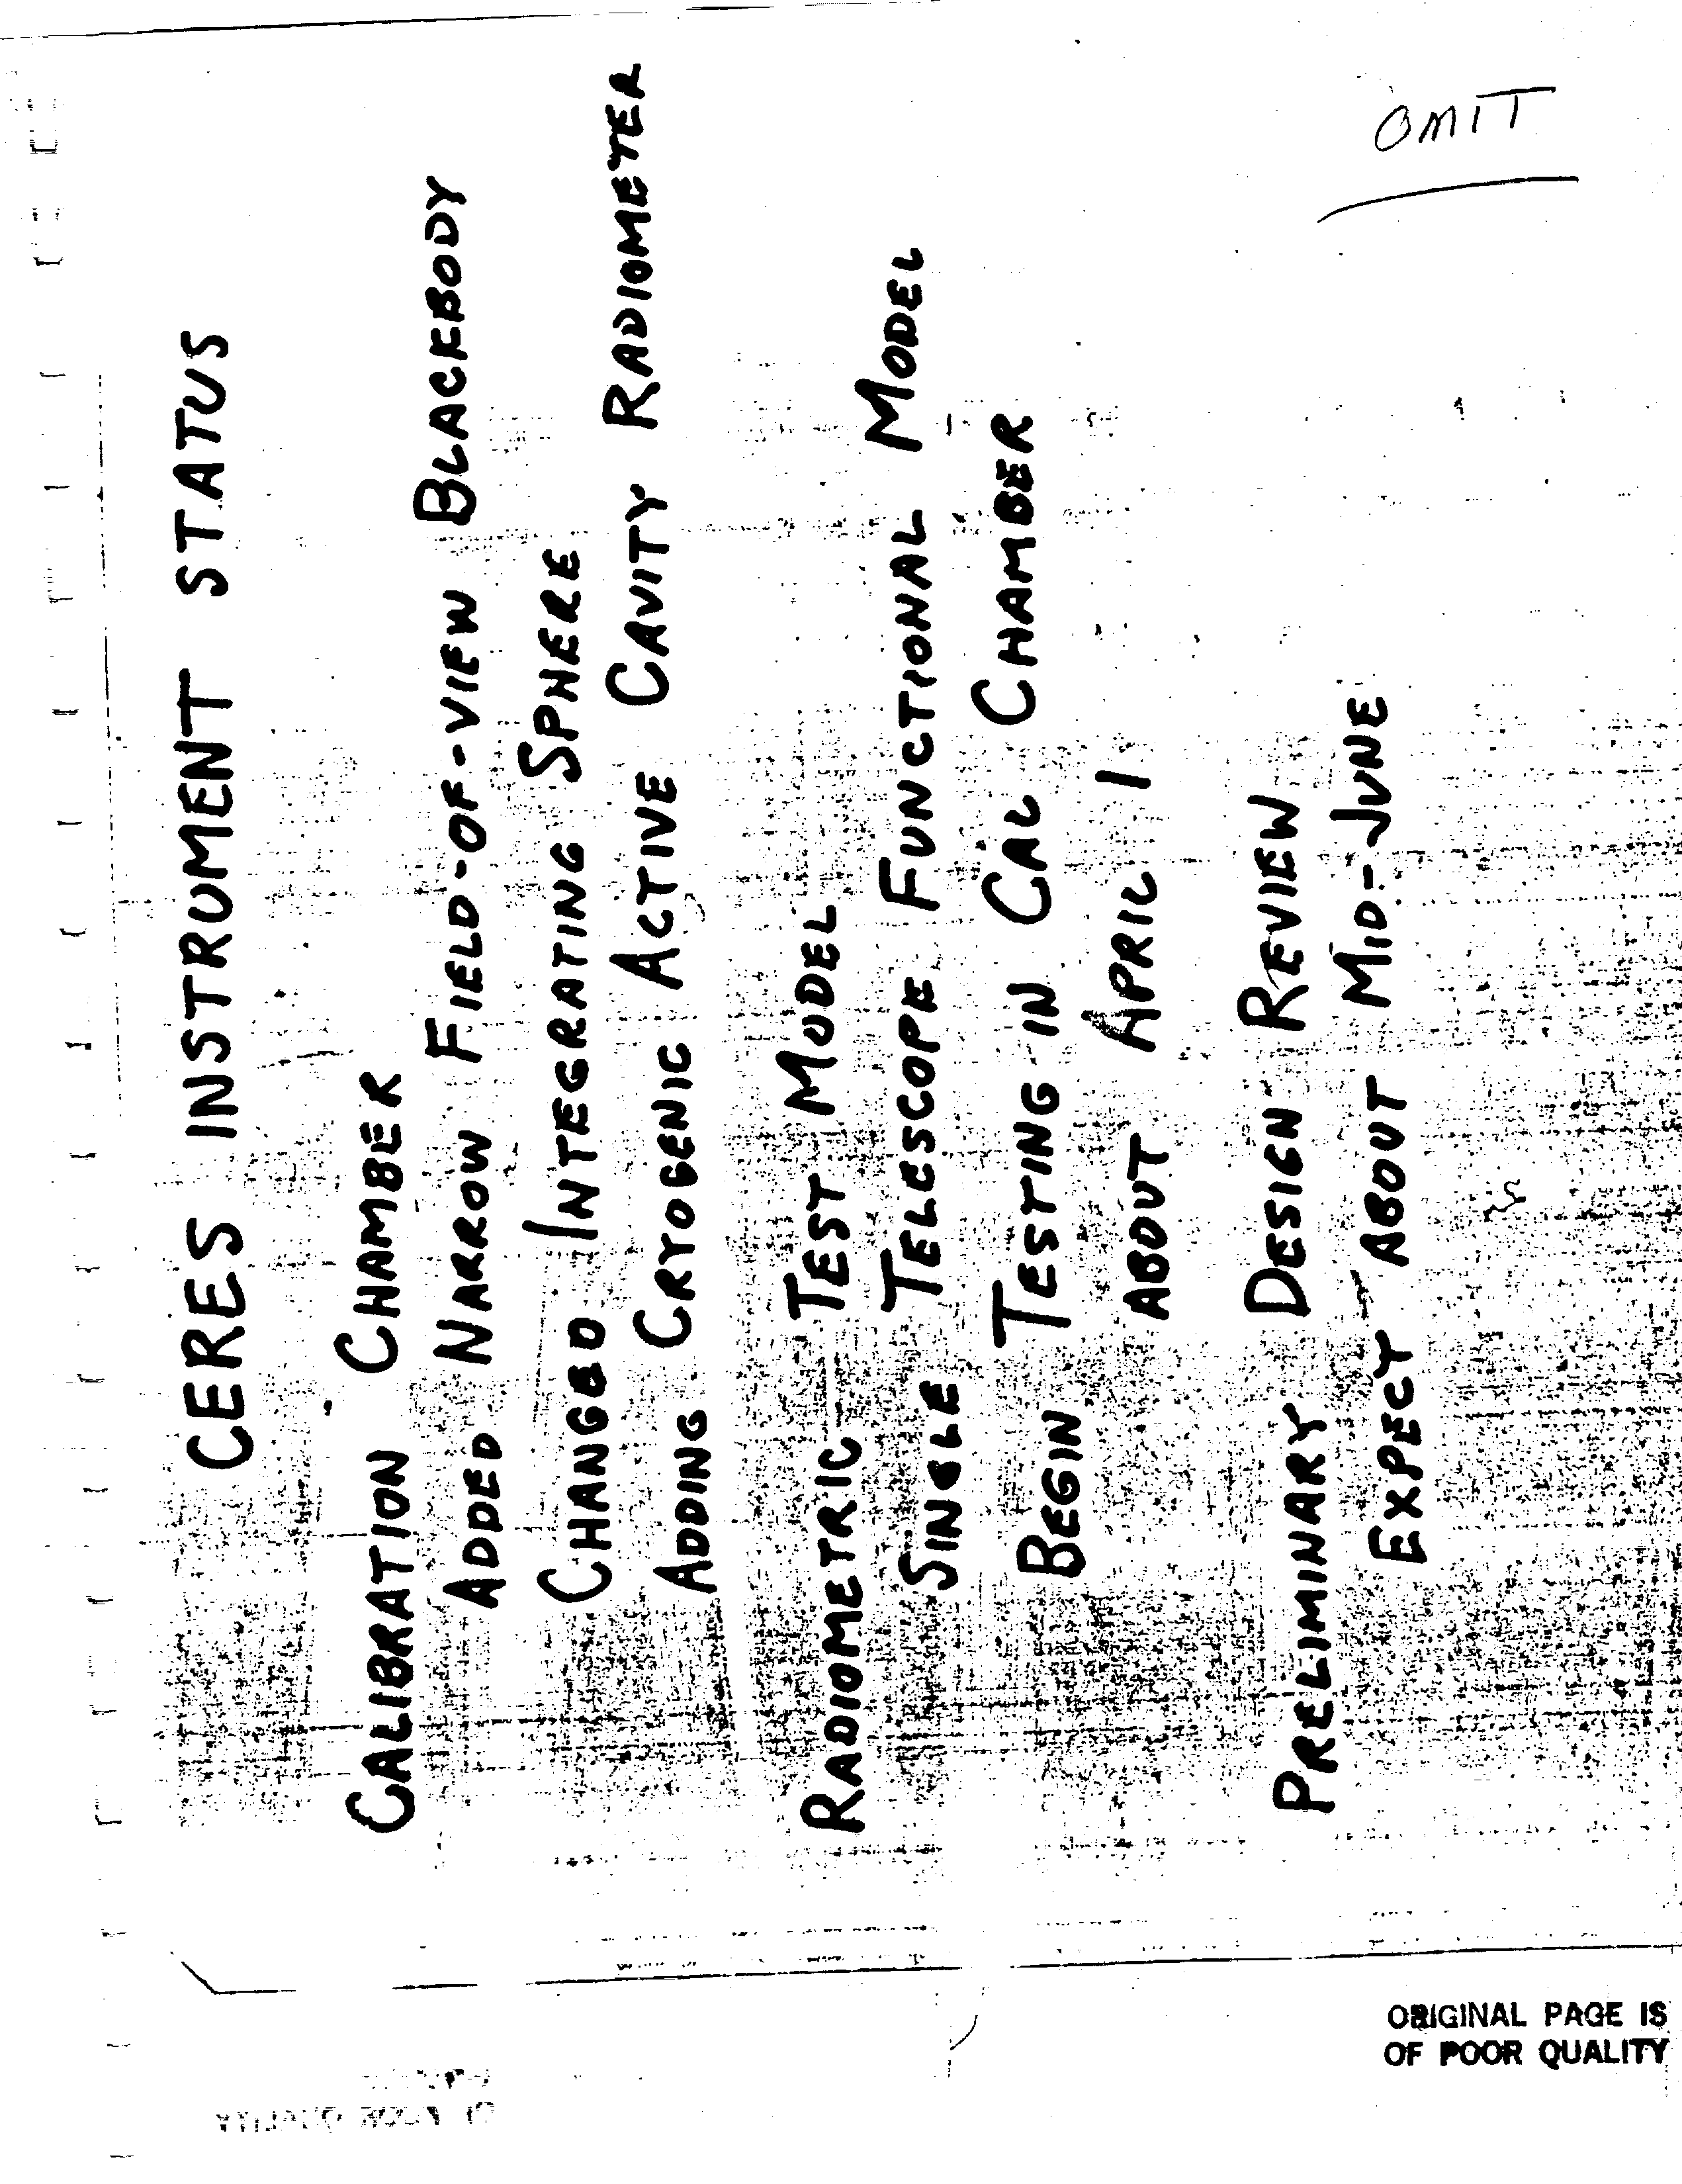 OMIT
CERES INSTRUMENT STATUS
CALIBRATION CHAMBER
ADDED NARROW FIELD-OF-VIEW BLACKBODY
CHANGED INTEGRATING SPHERE
ADDING CRYOGENIC ACTIVE CAVITY RADIOMETER
RADIOMETRIC TEST MODEL
SINGLE TELESCOPE FUNCTIONAL MODEL
BEGIN TESTING IN CAL CHAMBER
ABOUT APRIL 1
PRELIMINARY DESIGN REVIEW
EXPECT ABOUT MID-JUNE
ORIGINAL PAGE IS
OF POOR QUALITY